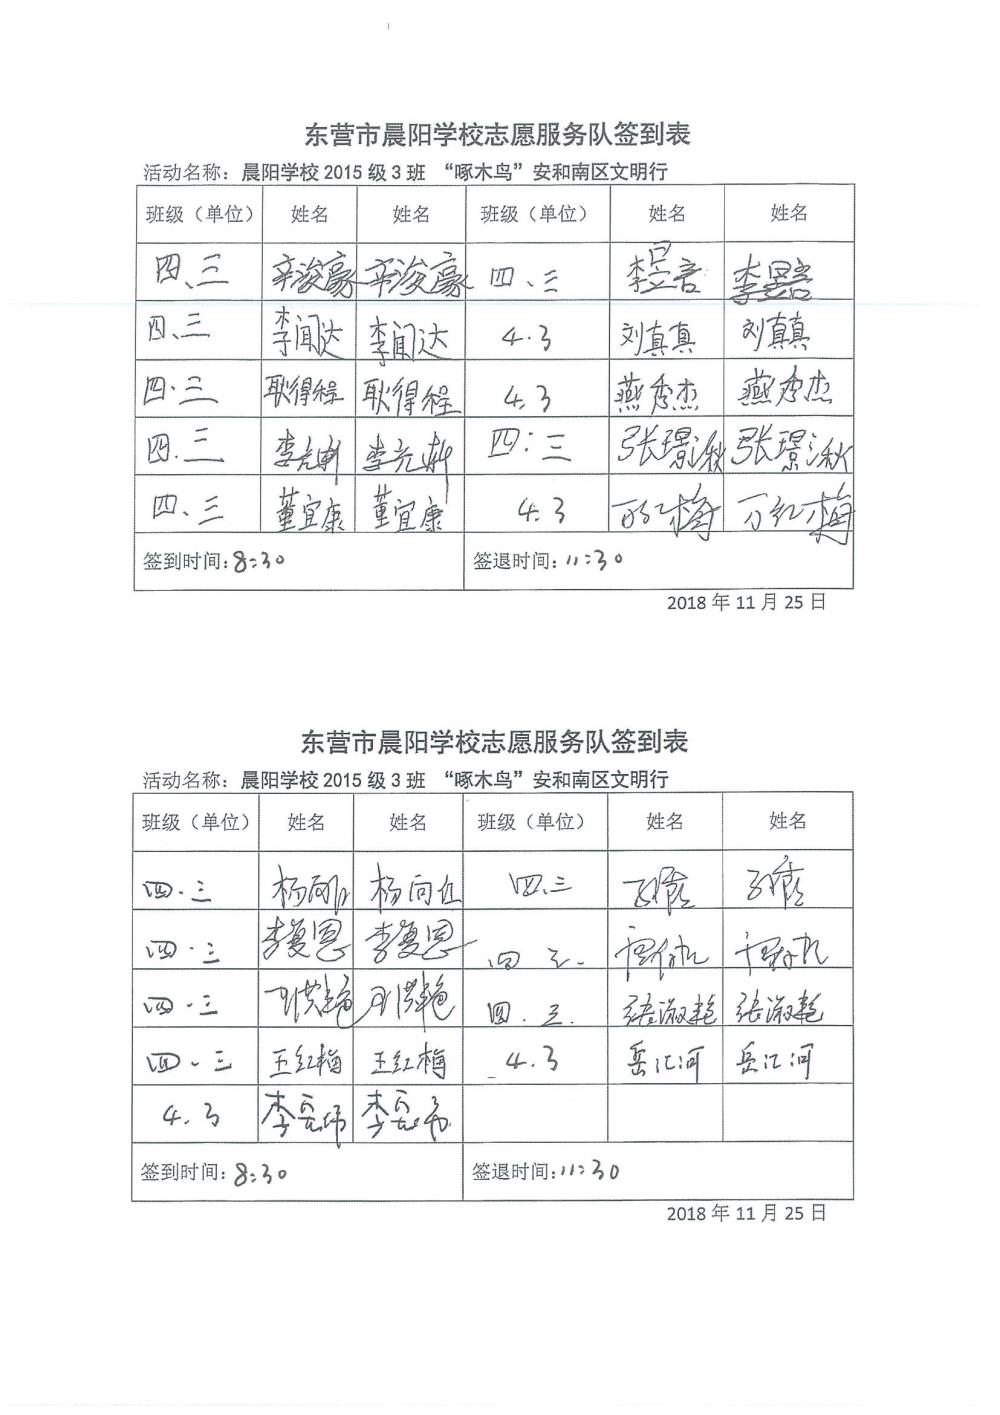 东营市晨阳学校志愿服务队签到表
活动名称：晨阳学校 2015 级 3 班 “啄木鸟”安和南区文明行
班级（单位） 姓名 姓名 班级（单位） 姓名 姓名
四、三 辛浚豪 辛浚豪 四、三 李昱言 李昱言
四、三 李闻达 李闻达 4.3 刘真真 刘真真
四.三 耿得程 耿得程 4.3 燕秀杰 燕秀杰
四.三 李先斬 李先斬 四:三 张璟湫 张璟湫
四、三 董宜康 董宜康 4.3 万红梅 万红梅
签到时间:8:30 签退时间:11:30
2018 年 11 月 25 日
东营市晨阳学校志愿服务队签到表
活动名称：晨阳学校 2015 级 3 班 “啄木鸟”安和南区文明行
班级（单位） 姓名 姓名 班级（单位） 姓名 姓名
四.三 杨向 杨向 四.三
四.三 李复恩 李复恩 四 三.
四.三 四.三. 张淑艳 张淑艳
四.三 王红梅 王红梅 4.3 岳汇河 岳汇河
4.3 李 李
签到时间:8:30 签退时间:11:30
2018 年 11 月 25 日